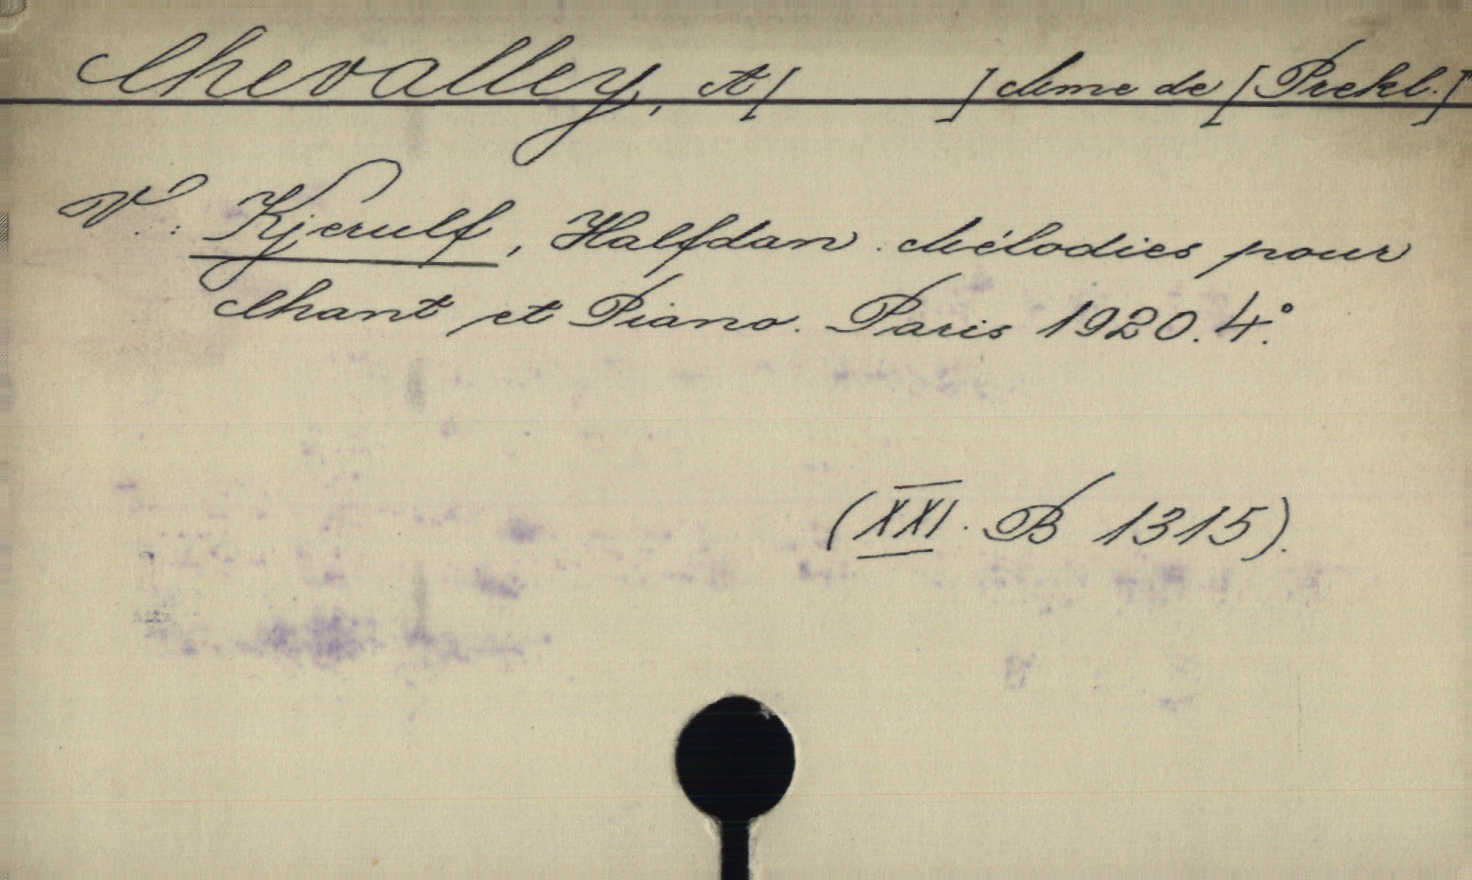 Chevalley, A[ ] Mme de [Prekl.]
V. : Kjerulf, Halfdan. Mélodies pour
Chant et Piano. Paris 1920. 4.°
(XXI. B 1315).